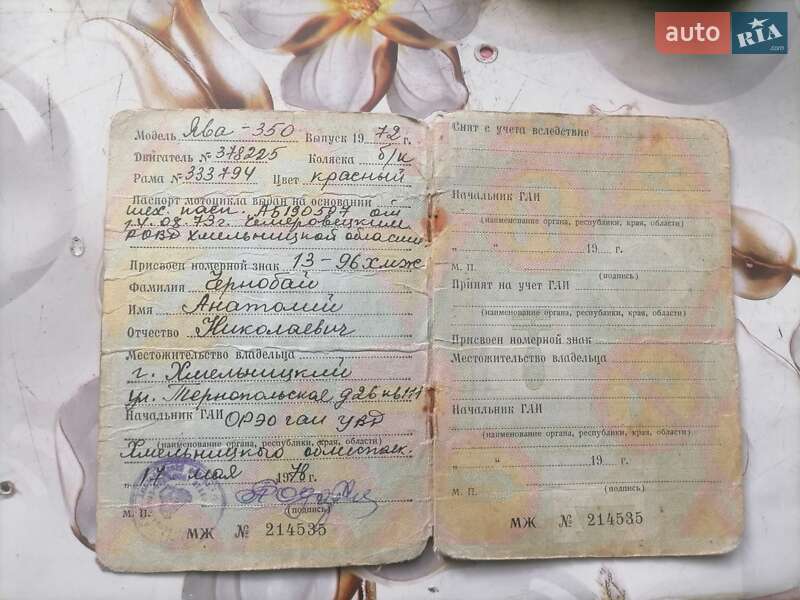 auto RIA.com
Модель Ява-350 Выпуск 1972 г.
Двигатель № 378225 Коляска б/к
Рама № 333794 Цвет красный
Паспорт мотоцикла выдан на основании
тех. пасп. АБ190507 от
08.73г. Чемеровецким
РОВД Хмельницкой области
Присвоен номерной знак 13-96 хмж
Фамилия Чернобай
Имя Анатолий
Отчество Николаевич
Местожительство владельца
г. Хмельницкий
ул. Тернопольская д26 кв111
Начальник ГАИ ОРЭО гаи УВД
(наименование органа, республики, края, области)
Хмельницкого
„17 мая 1978 г.
(подпись)
М. П.
МЖ № 214535
Снят с учета вследствие
Начальник ГАИ
(наименование органа, республики, края, области)
„ “ 19 г.
М. П. (подпись)
Принят на учет ГАИ
(наименование органа, республики, края, области)
Присвоен номерной знак
Местожительство владельца
Начальник ГАИ
(наименование органа, республики, края, области)
„ “ 19 г.
М. П. (подпись)
МЖ № 214535